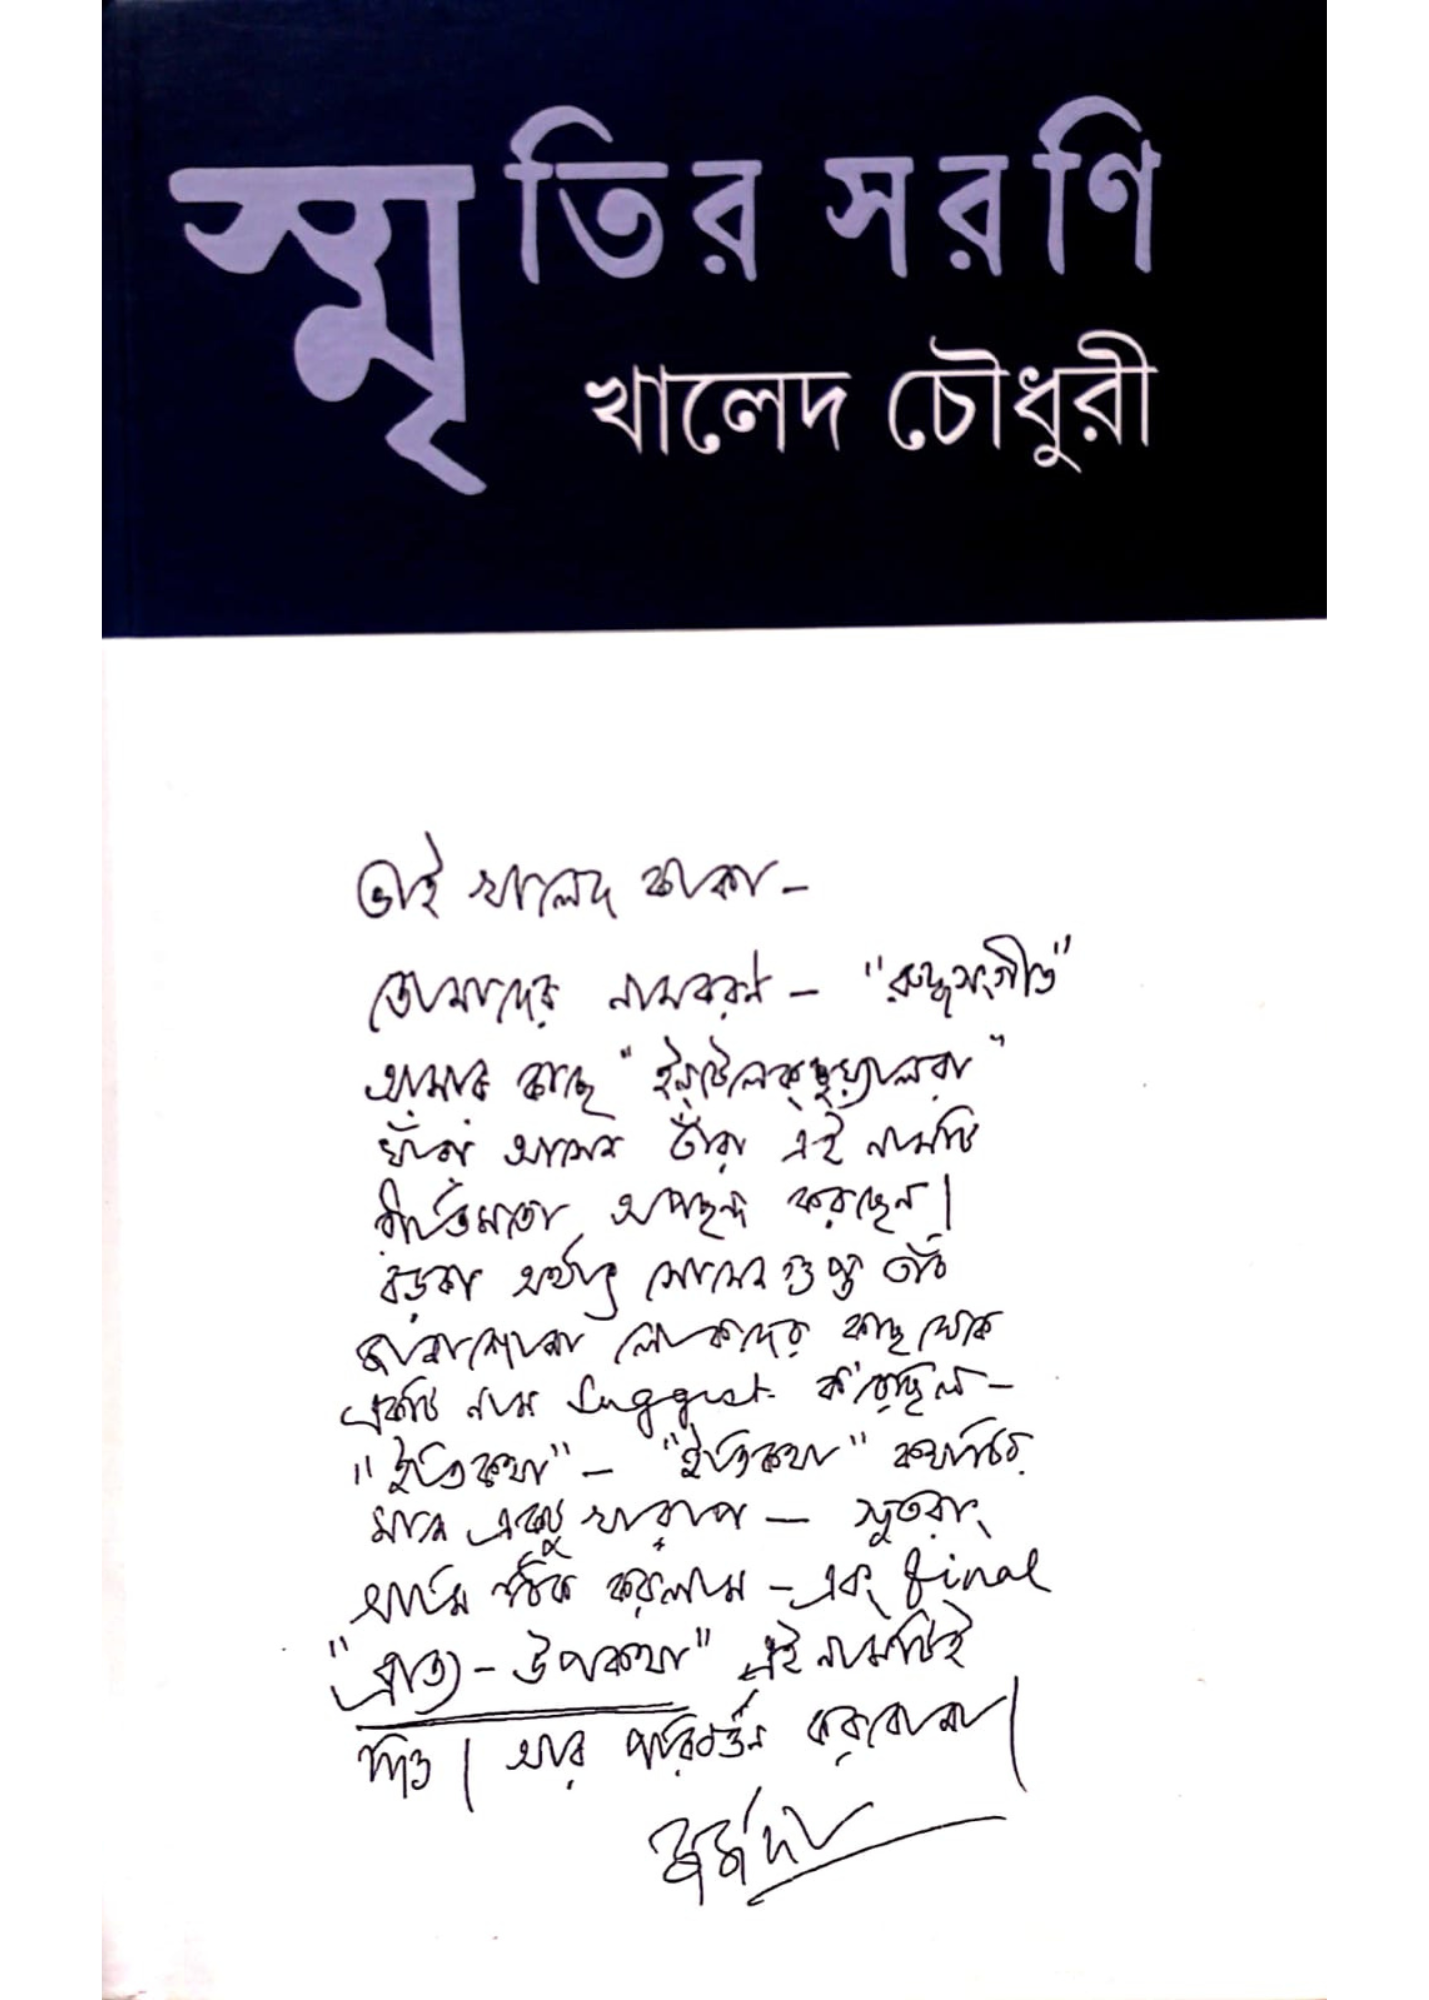 স্মৃতির সরণি
খালেদ চৌধুরী
ভাই খালেদ কাকা –
তোমাদের নামকরণ – "রুদ্ধসংগীত"
আমার কাছে "ইন্টেলেক্‌চুয়্যালরা"
যাঁরা আসেন তাঁরা এই নামটি
রীতিমতো অপছন্দ করছেন।
বড়কা অর্থাৎ গুপ্ত তাঁর
জানাশোনা লোকদের কাছ থেকে
একটি নাম Suggest করেছিল –
"ইতিকথা" – "ইতিকথা" কথাটির
মানে একটু খারাপ – সুতরাং
আমি ঠিক করলাম – এবং final
"ব্রাত্য - উপকথা" এই নামটিই
দিও। আর পরিবর্ত্তন করবোনা।
জর্জদা